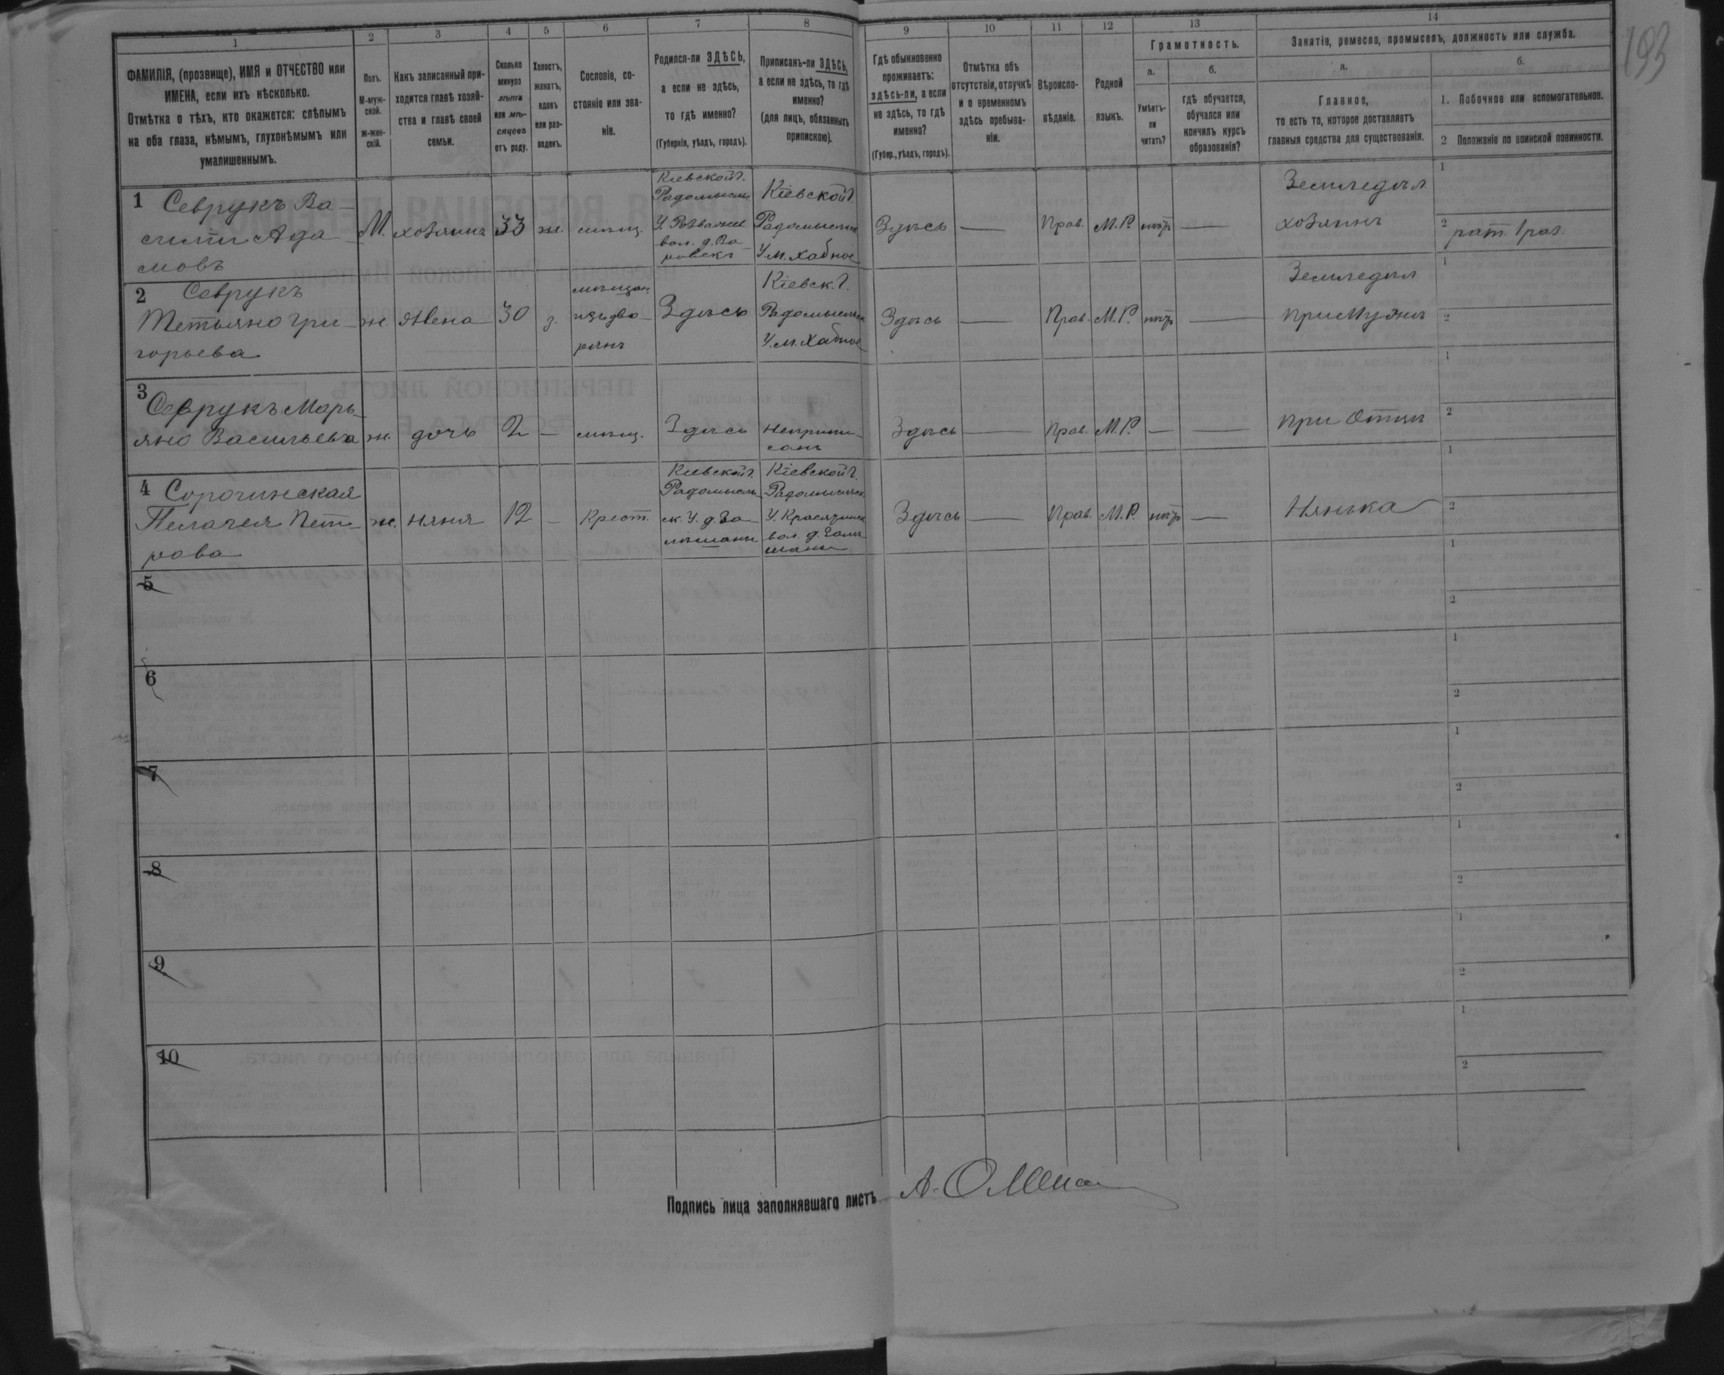 193
1
ФАМИЛІЯ, (прозвище), ИМЯ и ОТЧЕСТВО или
ИМЕНА, если ихъ нѣсколько.
Отмѣтка о тѣхъ, кто окажется: слѣпымъ
на оба глаза, нѣмымъ, глухонѣмымъ или
умалишеннымъ.
2
Полъ.
М-муж-
ской.
ж-жен-
скій.
3
Какъ записанный при-
ходится главѣ хозяй-
ства и главѣ своей
семьи.
4
Сколько
минуло
лѣтъ
или мѣ-
сяцевъ
отъ роду.
5
Холостъ,
женатъ,
вдовъ
или раз-
веденъ.
6
Сословіе, со-
стояніе или зва-
ніе.
7
Родился-ли ЗДѢСЬ,
а если не здѣсь,
то гдѣ именно?
(Губернія, уѣздъ, городъ).
8
Приписанъ-ли ЗДѢСЬ,
а если не здѣсь, то гдѣ
именно?
(для лицъ, обязанныхъ
припискою).
9
Гдѣ обыкновенно
проживаетъ:
здѣсь-ли, а если
не здѣсь, то гдѣ
именно?
(Губер., уѣздъ, городъ).
10
Отмѣтка объ
отсутствіи, отлучкѣ
и о временномъ
здѣсь пребыва-
ніи.
11
Вѣроиспо-
вѣданіе.
12
Родной
языкъ.
13
Грамотность.
а.
Умѣетъ-
ли
читать?
б.
гдѣ обучается,
обучался или
кончилъ курсъ
образованія?
14
Занятіе, ремесло, промыселъ, должность или служба.
а.
Главное,
то есть то, которое доставляетъ
главныя средства для существованія.
б.
1. Побочное или вспомогательное.
2 Положеніе по воинской повинности.
1 Севрукъ Ва-
силій Ада-
мовъ
М.
хозяинъ
33
ж.
мѣщ.
Кіевской г.
Радомысль
У.
вол. д.
Кіевской Г.
Радомысльск
У. м. Хабное
Здѣсь
—
Прав.
М.Р.
нѣтъ
—
Земледѣл
хозяинъ
1
2
рат. 1 раз.
2 Севрукъ
Тетьяна Гри-
горьева
ж.
жена
30
з.
мѣщан
изъ дво-
рянъ
Здѣсь
Кіевск. Г.
Радомысльск
У. м. Хабное
Здѣсь
—
Прав.
М.Р.
нѣтъ
—
Земледѣл
при мужѣ
1
2
3 Севрукъ Марь-
яна Васильева
ж.
дочь
2
—
мѣщ.
Здѣсь
неприпи-
сана
Здѣсь
—
Прав.
М.Р.
—
—
при отцѣ
1
2
4 Сорочинская
Пелагея Пет-
рова
ж.
няня
12
–
Крест.
Кіевской г.
Радомысль-
ск. У. д.
Кіевской г.
Радомысльск
У.
вол. д.
Здѣсь
—
Прав.
М.Р.
нѣтъ
—
Нянька
1
2
5
1
2
6
1
2
7
1
2
8
1
2
9
1
2
10
1
2
Подпись лица заполнявшаго листъ